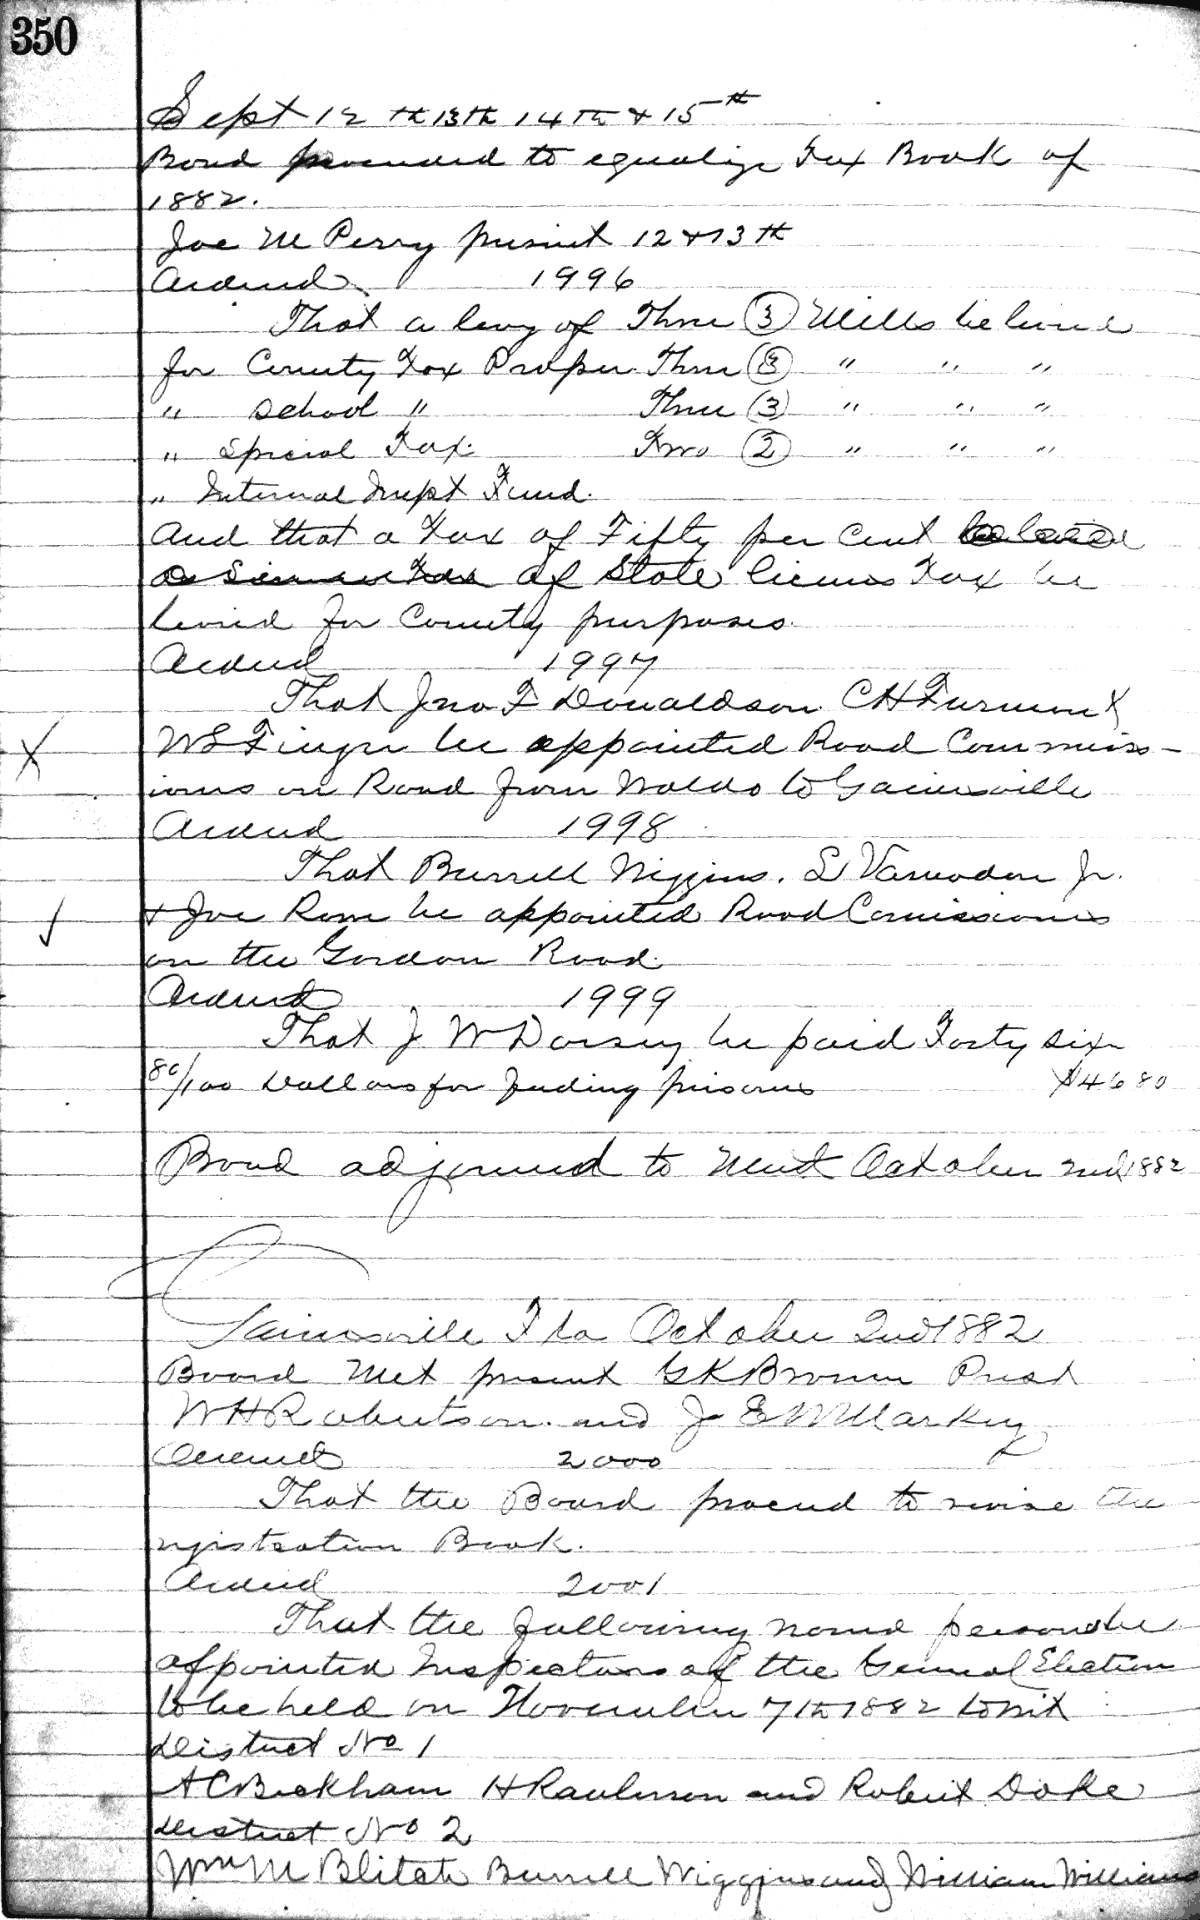 350
Sept 12th 13th 14th & 15th
Board proceeded to equalize Tax Book of
1882.
Joe M Perry present 12 & 13th
Ordered 1996
That a levy of Three (3) Mills be levied
for County Tax Proper Three (3) " " "
" School " Three (3) " " "
" Special Tax. Two (2) " " "
" Internal Impt Fund.
And that a Tax of Fifty per cent
of State license Tax be
levied for County purposes.
Ordered 1997
That Jno F Donaldson CH Furman &
X WS Finger be appointed Road Commiss-
ions on Road from Waldo to Gainesville
Ordered 1998
That Burrell Wiggins. L Jr.
& Joe be appointed Road Comissioners
on the Gordon Road.
Ordered 1999
That J W Dorsey be paid Forty six
80/100 Dollars for feeding prisoners $46 80
Board adjourned to Meet October 2nd 1882
Gainesville Fla October 2nd 1882
Board Met present GK Broome Prest
WH Robertson and J E W Markey
Ordered 2000
That the Board proceed to revise the
registration Book.
Ordered 2001
That the following named persons be
appointed Inspectors of the General Election
to be held on November 7th 1882 towit
District No 1
A C Beckham H Raulerson and Robert Doke
District No 2
Wm M Blitch Burrell Wiggins and William Williams